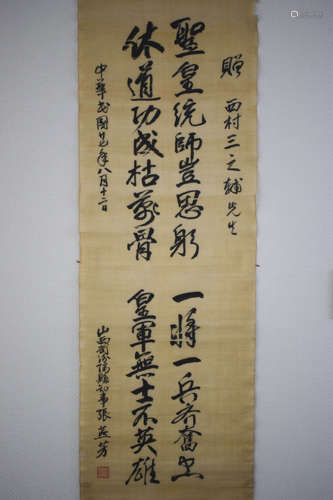 贈 西村三之輔先生
聖皇統師豈思躬 一將一兵齐奮忠
休道功成枯萬骨 皇軍無士不英雄
中華民國廿七年八月十二日
山西省汾陽縣知事張蓝芳